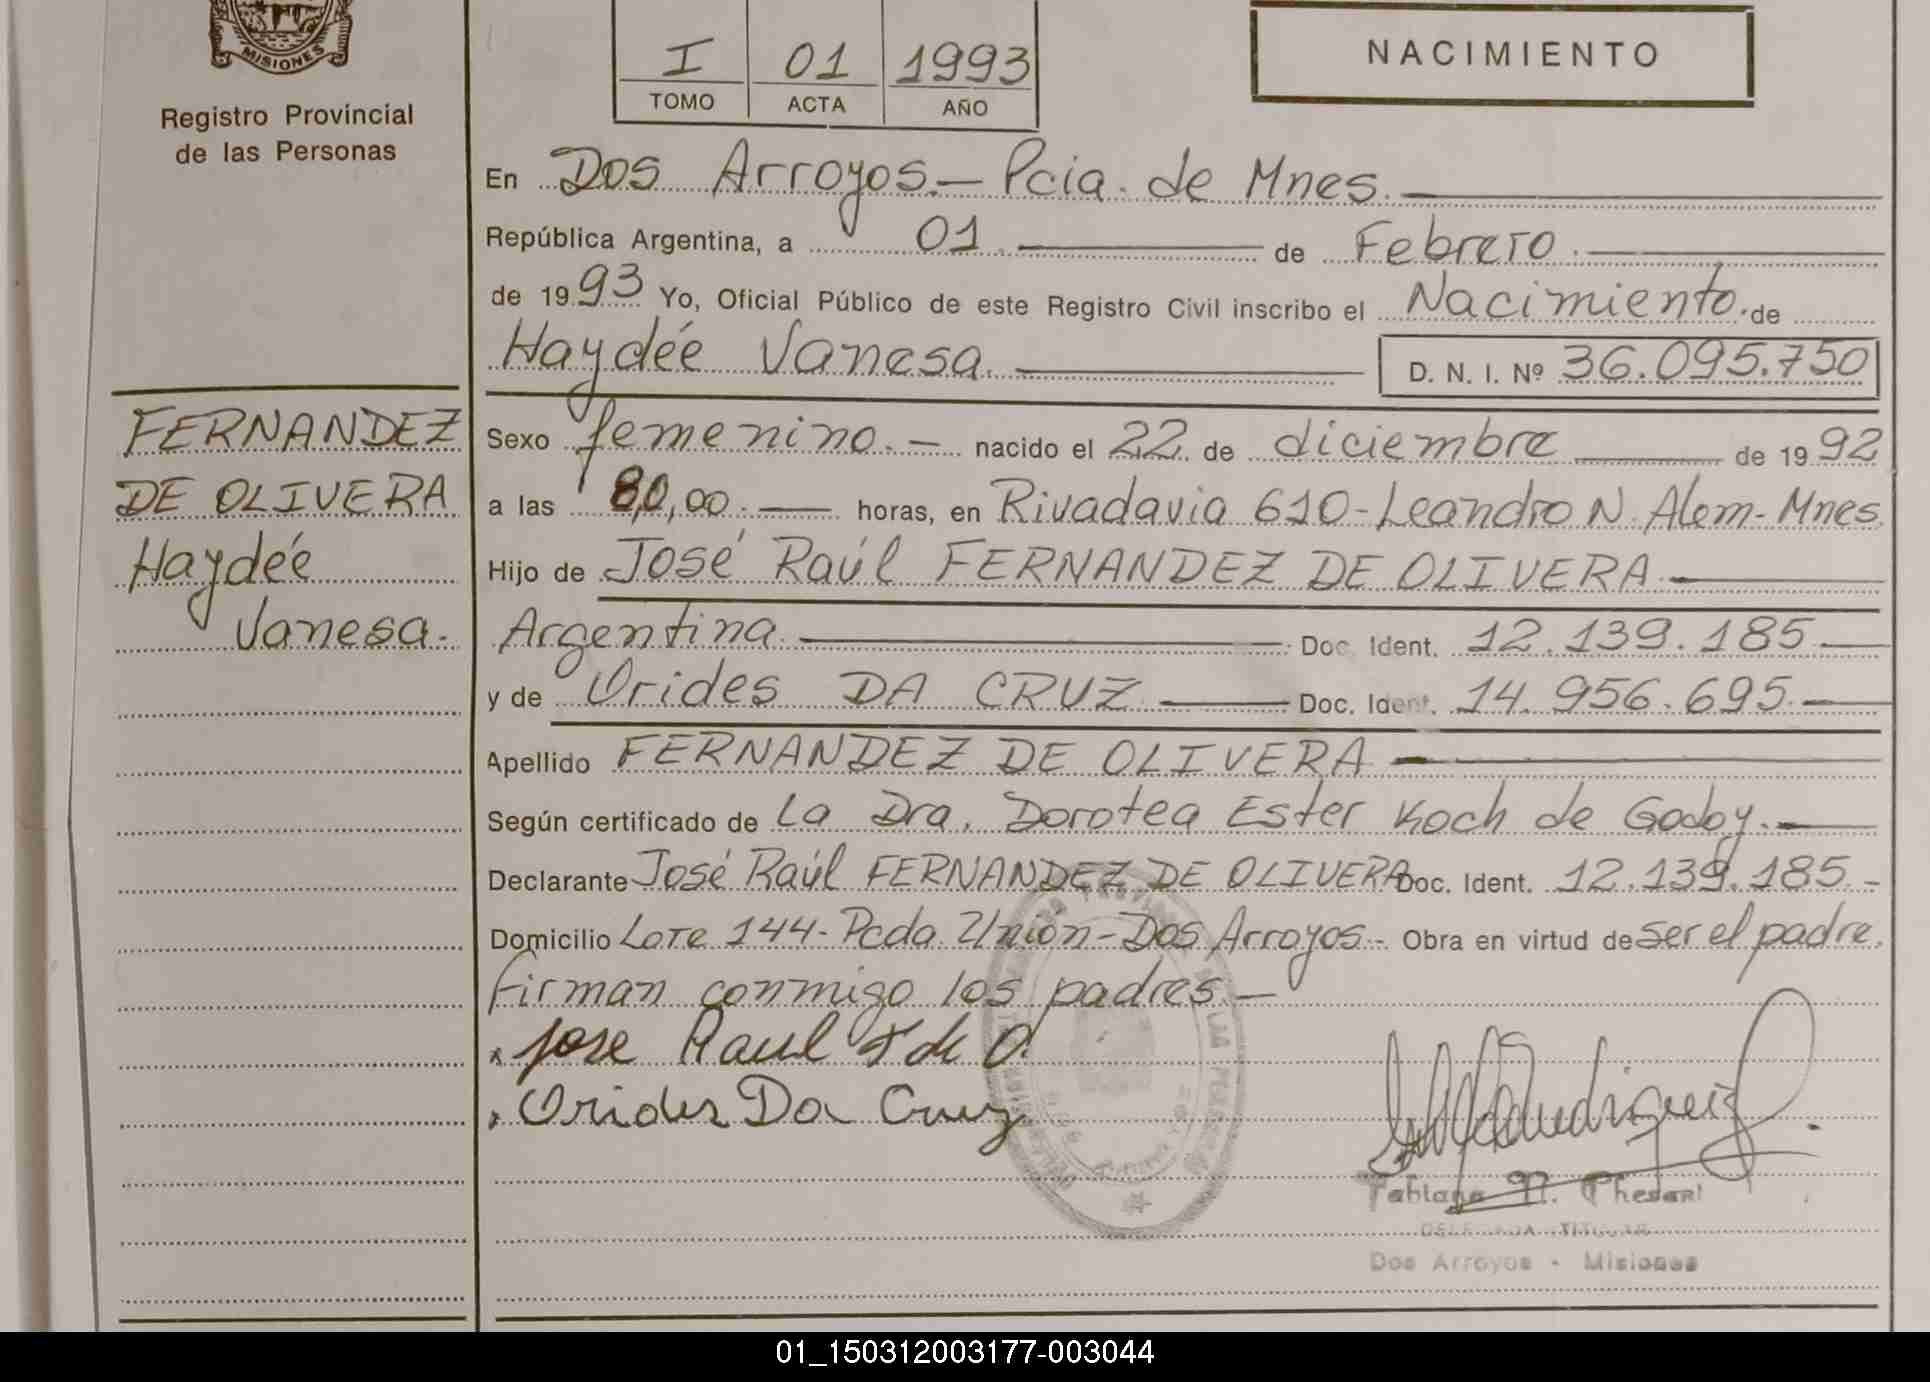 MISIONES
Registro Provincial
de las Personas
I 01 1993
TOMO ACTA AÑO
NACIMIENTO
En Dos Arroyos.— Pcia. de Mnes.
República Argentina, a 01. de Febrero.
de 1993 Yo, Oficial Público de este Registro Civil inscribo el Nacimiento. de
Haydée Vanesa. D. N. I. Nº 36.095.750
FERNANDEZ
DE OLIVERA
Haydée
Vanesa.
Sexo femenino.— nacido el 22 de diciembre de 1992
a las horas, en Rivadavia 610-Leandro N. Alem-Mnes.
Hijo de José Raúl FERNANDEZ DE OLIVERA
Argentina. Doc. Ident. 12.139.185
y de Orides DA CRUZ Doc. Ident. 14.956.695
Apellido FERNANDEZ DE OLIVERA
Según certificado de La Dra. Dorotea Ester Koch de Godoy.
Declarante José Raúl FERNANDEZ DE OLIVERA Doc. Ident. 12.139.185.-
Domicilio Lote 144-Pcda. Unión-Dos Arroyos- Obra en virtud de ser el padre.
Firman conmigo los padres.—
Jose Raul F de O.
Orides Da Cruz
DELEGADA TITULAR
Dos Arroyos - Misiones
01_150312003177-003044